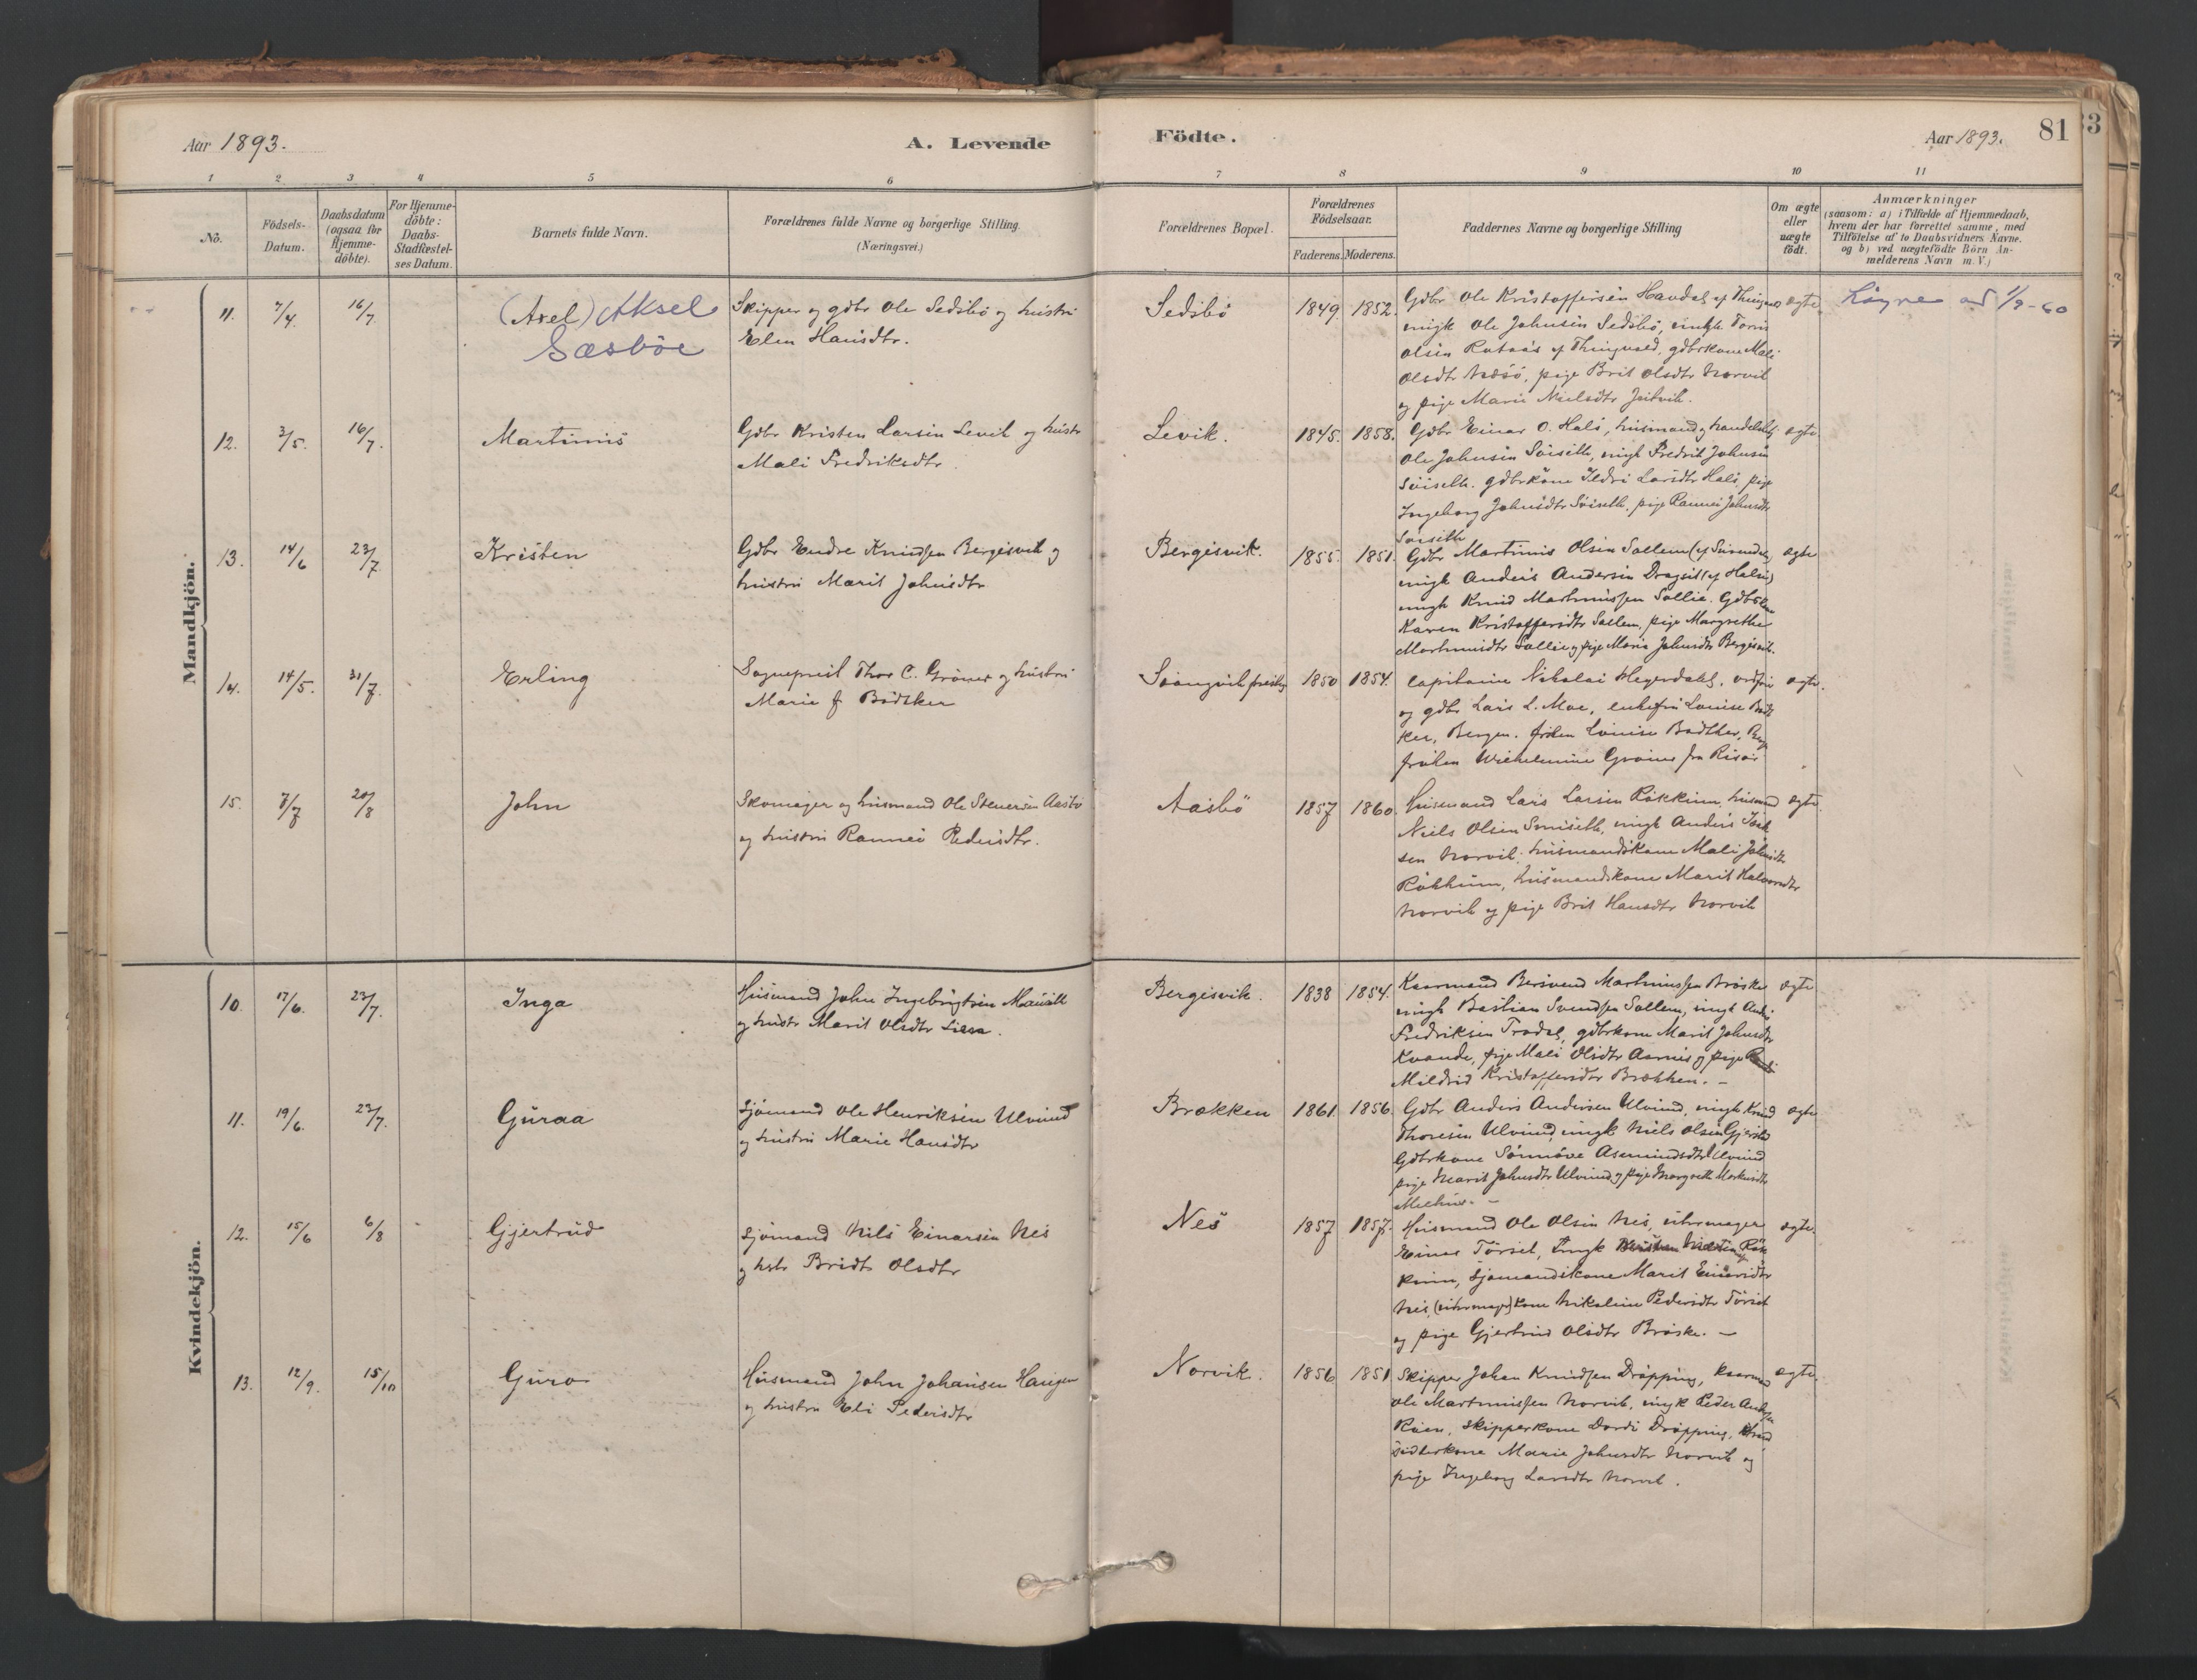 Aar 1893.
A. Levende
Födte.
Aar 1893.
81
33
1 2 3 4 5 6 7 8 9 10 11
No.
Födsels-
Datum.
Daabsdatum
(ogsaa for
Hjemme-
döbte).
For Hjemme-
döbte:
Daabs-
Stadfæstel-
ses Datum.
Barnets fulde Navn.
Forældrenes fulde Navne og borgerlige Stilling.
(Næringsvei.)
Forældrenes Bopæl.
Forældrenes
Födselsaar.
Faderens. Moderens.
Faddernes Navne og borgerlige Stilling
Om ægte
eller
uægte
födt.
Anmærkninger
(saasom: a) i Tilfælde af Hjemmedaab,
hvem der har forrettet samme, med
Tilföielse af to Daabsvidners Navne.
og b) ved uægtefödte Börn An-
melderens Navn m. V.)
Mandkjön.
11. 7/4 16/7
(Axel) Aksel
Sæsböe
Skipper og gdbr Ole Sedsbö og hustru
Elen Hansdtr.
Sedsbö
1849 1852.
Gdbr Ole Kristoffersen Havdal af Thingvold
ungk Ole Johnsen Sedsbö, ungk
Olsen af Thingvold, gdbrkone Mali
Olsdtr pige Brit Olsdtr Norvik
og pige Marie Nielsdtr
ægte
1/9-60
12. 3/5. 16/7.
Martinus
Gdbr Kristen Larsen Levik og hustr
Mali Fredriksdtr.
Levik.
1845. 1858.
Gdbr Einar O. Halö, husmand og
Ole Johnsen Söiseth, ungk Fredrik Johnsen
Söiseth. gdbrkone Ildri Larsdtr Halö, pige
Ingeborg Johnsdtr Söiseth, pige Rannei Johnsdtr
Söiseth
ægte
13. 14/6 23/7
Kristen
Gdbr Endre Knudsen Bergisvik og
hustru Marit Johnsdtr
Bergisvik.
1855. 1851.
Gdbr Martinus Olsen Sollem (af
ungk Anders Andersen (af Halse)
ungk Knud Martinussen Sollie. Gdbrkone
Karen Kristoffersdtr Sollem, pige Margrethe
Martinusdtr Sollie og pige Marie Johnsdtr Bergisvik.
ægte
14. 14/5. 31/7.
Erling
Sogneprest Thor C. Gröner og hustru
Marie f Bödtker
1850 1854.
Capitaine Nikolai Hegerdahl,
og gdbr Lars L. Moe, enkefru Louise Bödt
ker, Bergen. fröken Louise Bödtker,
fröken Wilhelmine Gröner fra Risör
ægte.
15. 7/7 20/8
John
Skomager og husmand Ole Steneresen Aasbö
og hustru Rannei Pedersdtr.
Aasbö
1857 1860.
Husmand Lars Larsen Rökkum, husmand
Niels Olsen ungk Anders
sen Norvik, husmandskone Mali Johnsdtr
Rökkum, husmandskone Marit Halvorsdtr
Norvik og pige Brit Hansdtr Norvik
ægte.
Kvindekjön.
10. 17/6. 23/7.
Inga
Husmand John Ingebrigtsen
og hustr Marit Olsdtr
Bergisvik.
1838 1854.
Kaarmand Bersvend Martinussen Bröske
ungk Bastian Svendsen Sollem, ungk Anders
Fredriksen Trodal, gdbrkone Marit Johnsdtr
Kvande, pige Mali Olsdtr Aarnes og pige
Mildrid Kristoffersdtr Brækken. –
ægte
11. 19/6. 23/7.
Guraa
Sjömand Ole Henriksen Ulvund
og hustru Marie Hansdtr
Brækken
1861. 1856.
Gdbr Anders Andersen Ulvund, ungk Knud
Thoresen Ulvund, ungk Niels Olsen
Gdbrkone Sönnöve Asmundsdtr Ulvund
pige Marit Johnsdtr Ulvund og pige Margrete

ægte
12. 15/6 6/8
Gjertrud
Sjömand Nils Einarsen Nes
og hstr Bridt Olsdtr
Nes
1857 1857.
Husmand Ole Olsen Nes, uhrmager
Einar Törset, Ungk Rök
kum, Sjömandskone Marit Einarsdtr
Nes, (uhrmager)kone Nikoline Pedersdtr Törset
og pige Gjertrud Olsdtr Bröske. –
ægte.
13. 12/9. 15/10
Guro
Husmand John Johansen Haugen
og hustru Eli Pedersdtr
Norvik.
1856 1851
Skipper Johan Knudsen Dröpping, kaarmand
Ole Martinussen Norvik, ungk Peder
Röen, skipperkone Dordi Dröpping,
kone Marie Johnsdtr Norvik og
pige Ingeborg Larsdtr Norvik.
ægte.